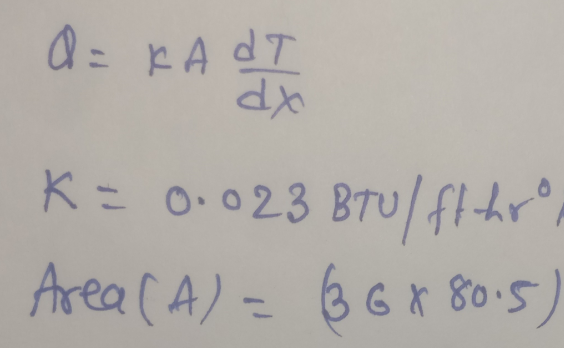 Q = KA dT/dx
K = 0.023 BTU/ft-hr°
Area(A) = (36 x 80.5)